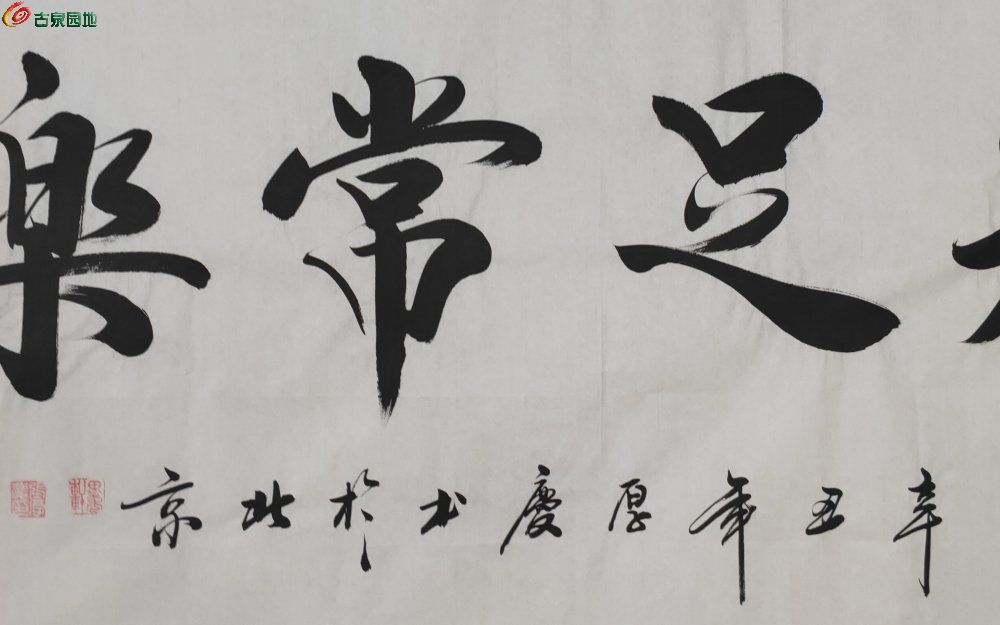 古泉园地
足常樂
辛丑年厚慶书於北京